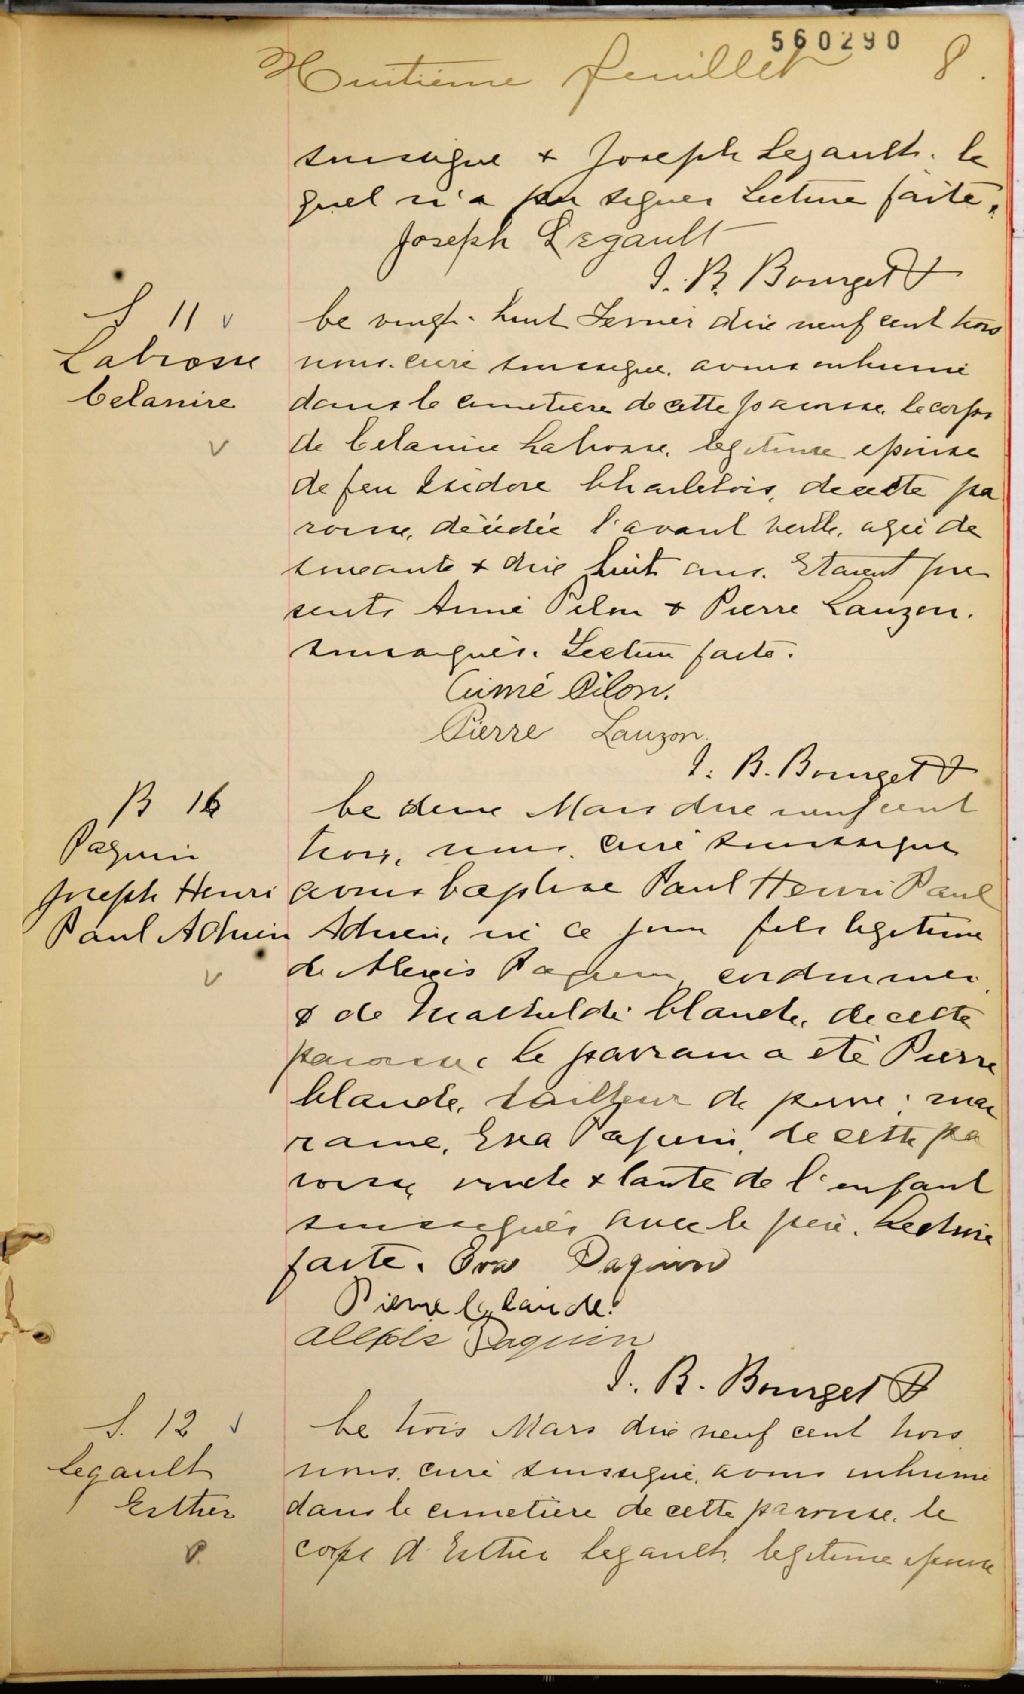 560290
Huitième feuillet 8.
soussigné & Joseph Legault. le
quel n'a pu signer Lecture faite.
Joseph Legault
J. B. Bourget Ptre
S 11
Labrosse
Celanire
Le vingt-huit Fevrier dix neuf cent trois
nous curé soussigné, avons inhumé
dans le cimetière de cette paroisse, le corps
de Celanire Labrosse, légitime épouse
de feu Isidore Charlebois, de cette pa
roisse, décédée l'avant veille, agée de
soixante & dix huit ans. Etaient pré
sents Aimé Pilon & Pierre Lauzon.
soussignés. Lecture faite.
Aimé Pilon.
Pierre Lauzon.
J. B. Bourget Ptre
B 16
Paquin
Joseph Henri
Paul Adrien
Le deux Mars dix neuf cent
trois, nous, curé soussigné
avons baptisé Paul Henri Paul
Adrien, né ce jour fils légitime
de Alexis Paquin, cordonnier,
& de Mathilde Lalande, de cette
paroisse. Le parrain a été Pierre
Lalande, tailleur de pierre; mar
raine, Eva Paquin, de cette pa
roisse, oncle & tante de l'enfant
soussignés avec le père. Lecture
faite. Eva Paquin
Pierre Lalande.
Alexis Paquin
J. B. Bourget Ptre
S. 12
Legault
Esther
Le trois Mars dix neuf cent trois
nous, curé soussigné, avons inhumé
dans le cimetière de cette paroisse, le
corps d'Esther Legault, légitime épouse